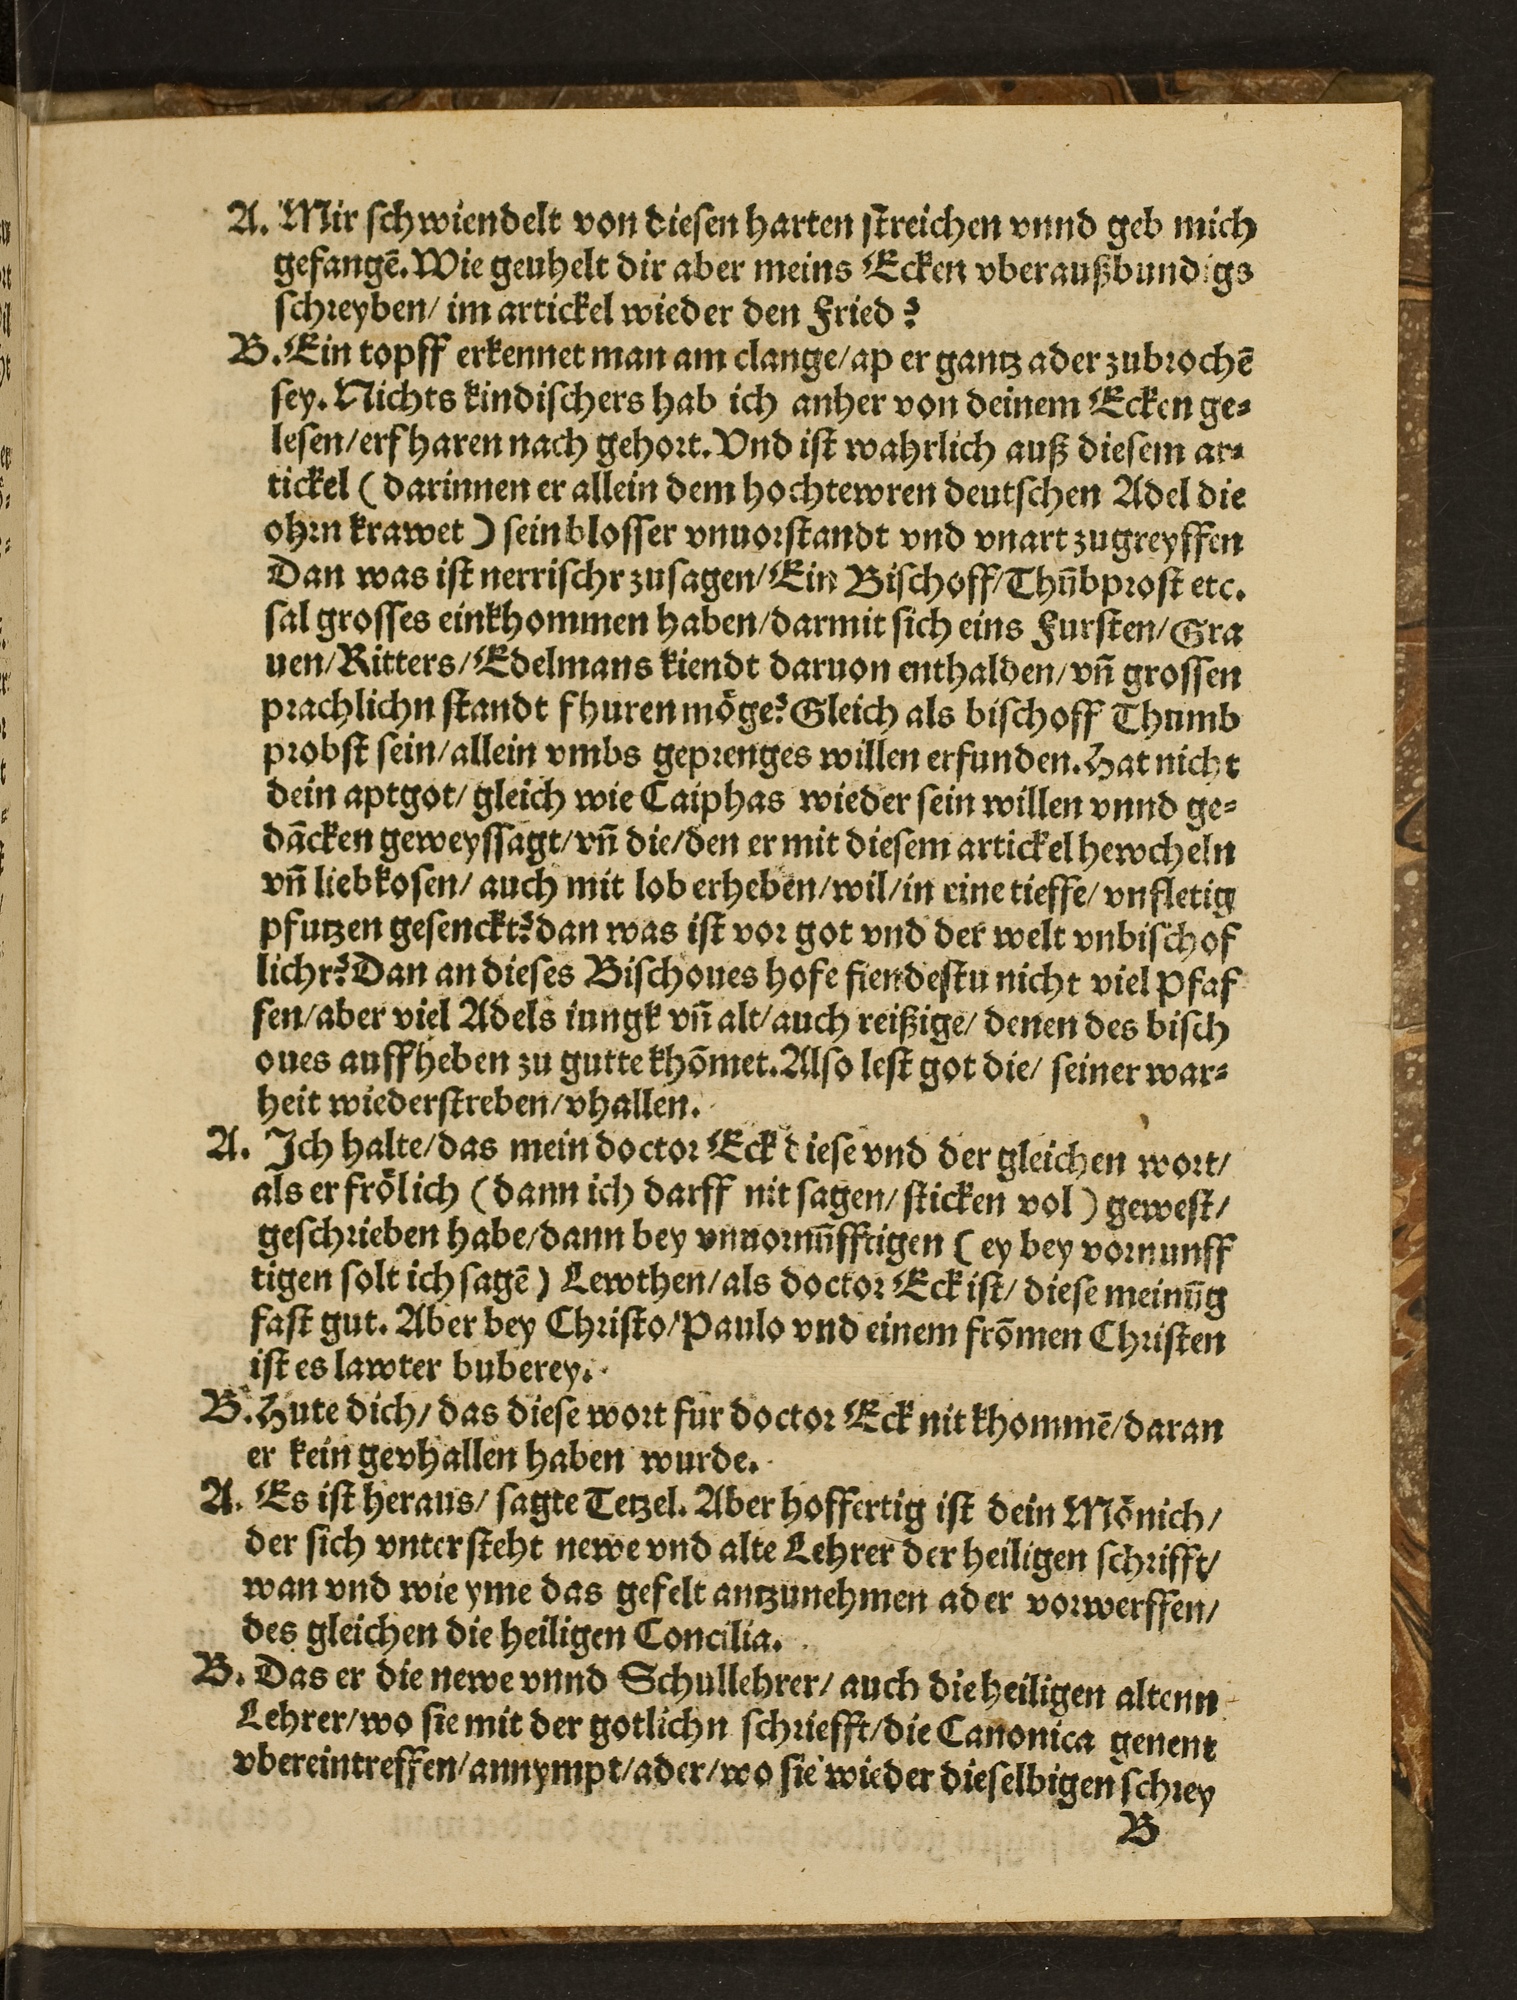 A. Mir schwiendelt von diesen harten streichen vnnd geb mich
gefangē. Wie geuhelt dir aber meins Ecken vberaußbundigs
schreyben/ im artickel wieder den Fried?
B. Ein topff erkennet man am clange/ap er gantz ader zubrochē
sey. Nichts kindischers hab ich anher von deinem Ecken ge⸗
lesen/erfharen nach gehort. Vnd ist wahrlich auß diesem ar⸗
tickel (darinnen er allein dem hochtewren deutschen Adel die
ohrn krawet) sein blosser vnuorstandt vnd vnart zugreyffen
Dan was ist nerrischr zusagen/Ein Bischoff/Thūbprost etc.
sal grosses einkhommen haben/darmit sich eins Fursten/Gra
uen/Ritters/Edelmans kiendt daruon enthalden/vn̄ grossen
prachlichn standt fhuren möge? Gleich als bischoff Thumb
probst sein/allein vmbs geprenges willen erfunden. Hat nicht
dein aptgot/ gleich wie Caiphas wieder sein willen vnnd ge⸗
dācken geweyssagt/vn̄ die/den er mit diesem artickel hewcheln
vn̄ liebkosen/ auch mit lob erheben/wil/in eine tieffe/ vnfletig
pfutzen gesenckt? dan was ist vor got vnd der welt vnbischof
lichr? Dan an dieses Bischoues hofe fiendestu nicht viel Pfaf
fen/aber viel Adels iungk vn̄ alt/auch reißige/ denen des bisch
oues auffheben zu gutte khōmet. Also lest got die/ seiner war⸗
heit wiederstreben/vhallen.
A. Ich halte/das mein doctor Eck diese vnd der gleichen wort/
als er frölich (dann ich darff nit sagen/ sticken vol) gewest/
geschrieben habe/dann bey vnuornūfftigen (ey bey vornunff
tigen solt ich sagē) Lewthen/als doctor Eck ist/ diese meinūg
fast gut. Aber bey Christo/Paulo vnd einem frōmen Christen
ist es lawter buberey.
B. Hute dich/ das diese wort fur doctor Eck nit khommē/daran
er kein gevhallen haben wurde.
A. Es ist heraus/ sagte Tetzel. Aber hoffertig ist dein Mönich/
der sich vntersteht newe vnd alte Lehrer der heiligen schrifft/
wan vnd wie yme das gefelt antzunehmen ader vorwerffen/
des gleichen die heiligen Concilia.
B. Das er die newe vnnd Schullehrer/ auch die heiligen altenn
Lehrer/wo sie mit der gotlichn schriefft/die Canonica genent
vbereintreffen/annympt/ader/wo sie wieder dieselbigen schrey
B